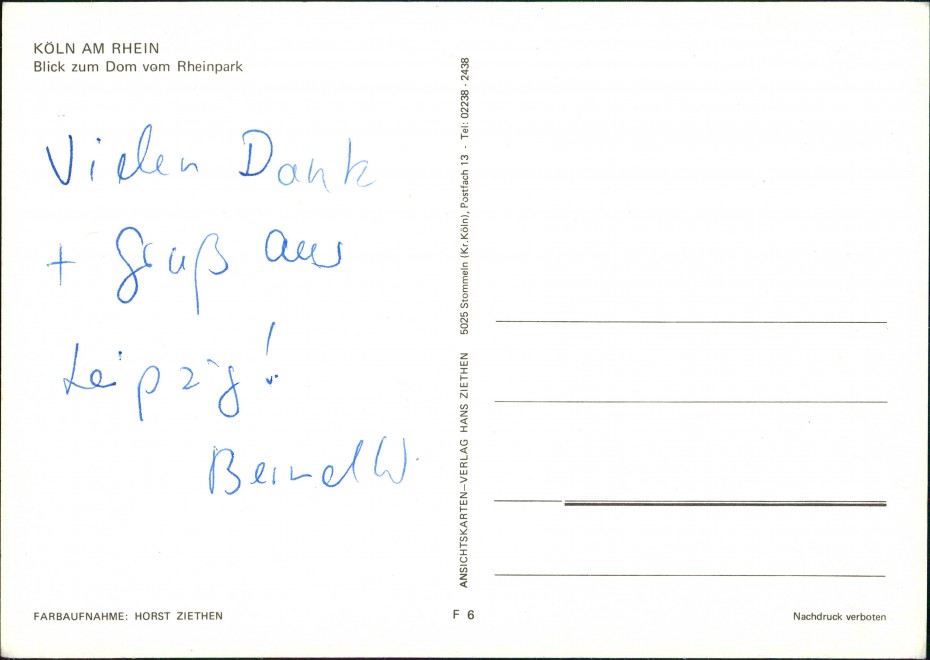 KÖLN AM RHEIN
Blick zum Dom vom Rheinpark
Vielen Dank
+ Gruß aus
Leipzig!
Bernd W.
FARBAUFNAHME: HORST ZIETHEN
ANSICHTSKARTEN-VERLAG HANS ZIETHEN 5025 Stommeln (Kr.Köln), Postfach 13 - Tel: 02238 - 2438
F 6
Nachdruck verboten